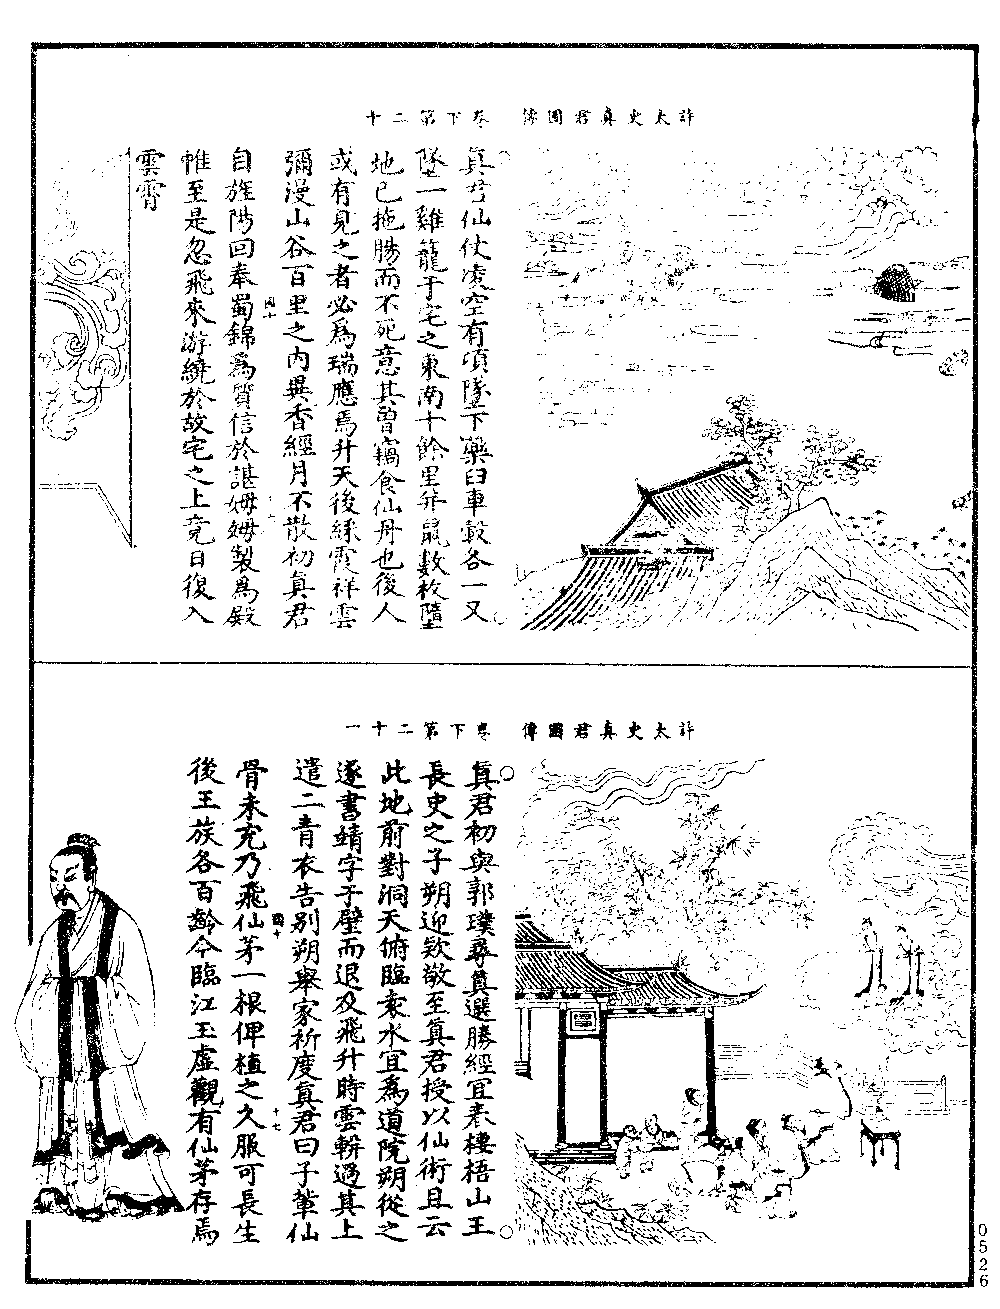 許太史真君圖傳　卷下第二十
真君仙仗凌空有頃墜下藥臼車轂各一又
墜一雞籠于宅之東南十餘里并鼠數枚墮
地已拖腸而不死意其曾竊食仙丹也後人
或有見之者必爲瑞應焉升天後綵霞祥雲
彌漫山谷百里之内異香經月不散初真君
自旌陽回奉蜀錦爲質信於諶姆姆製爲殿
帷至是忽飛來游繞於故宅之上竟日復入
雲霄
國十
許太史真君圖傳　卷下第二十一
真君初與郭璞尋真選勝經宜春棲梧山王
長史之子朔迎欵敬至真君授以仙術且云
此地前對洞天俯臨袁水宜爲道院朔從之
遂書蜻字于壁而退及飛升時雲輧過其上
遣二青衣告别朔舉家祈度真君曰子輩仙
骨未充乃飛仙茅一根俾植之久服可長生
後王族各百齡今臨江玉虚觀有仙茅存焉
國十
十七
0526